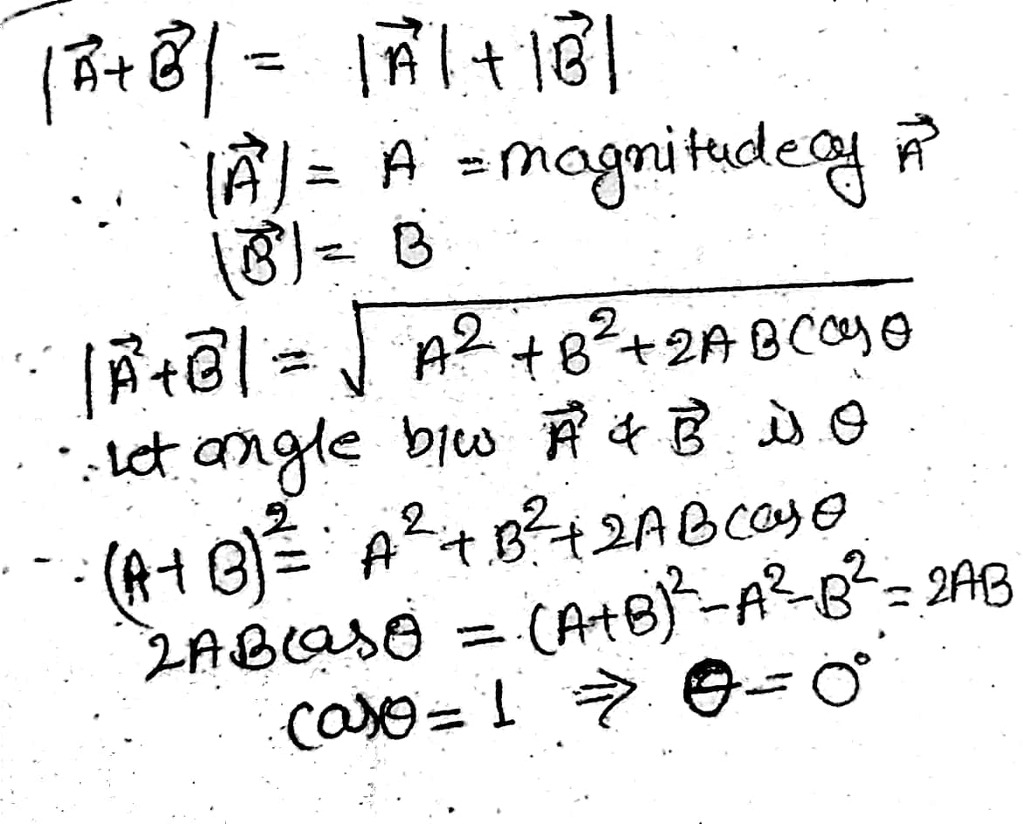 |A⃗+B⃗| = |A⃗|+|B⃗|
|A⃗| = A = magnitude of A⃗
|B⃗| = B
|A⃗+B⃗| = √(A²+B²+2ABcosθ)
Let angle b/w A⃗ & B⃗ is θ
(A+B)² = A²+B²+2ABcosθ
2ABcosθ = (A+B)²-A²-B² = 2AB
cosθ = 1 ⇒ θ = 0°